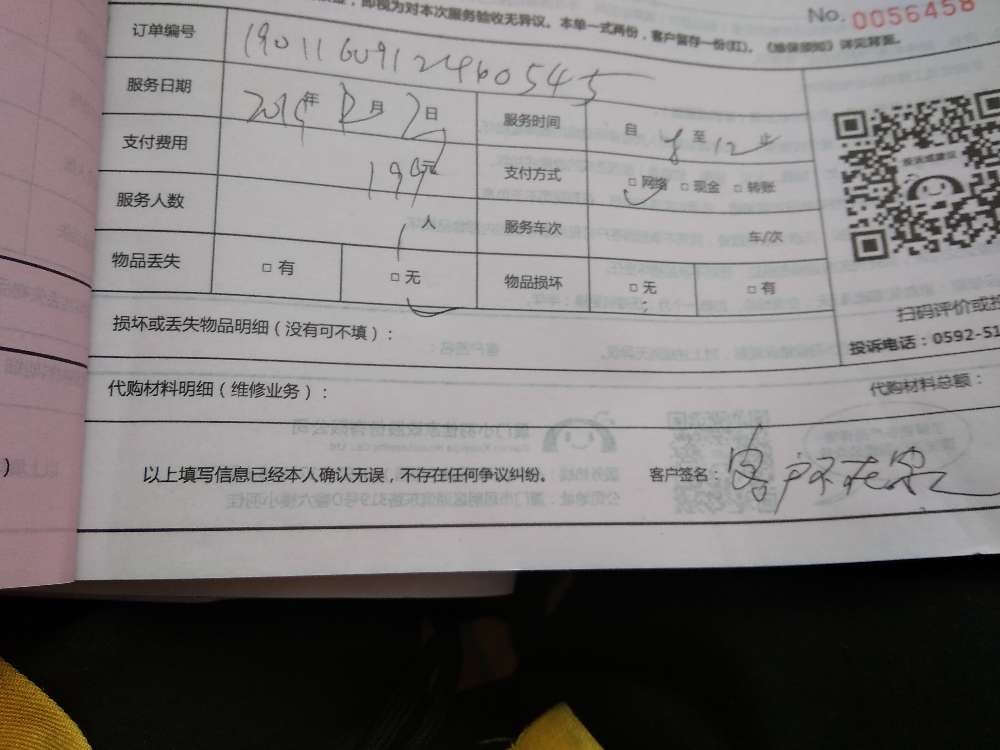 即视为对本次服务验收无异议。本单一式两份，客户留存一份(红)。《维保须知》详见背面。
No. 0056458
订单编号 1901160912460545
服务日期 2019年12月2日 服务时间 自 8 至 12 止
支付费用 199元 支付方式 □ 网络 □ 现金 □ 转账
服务人数 1人 服务车次 车/次
物品丢失 □ 有 □ 无 物品损坏 □ 无 □ 有
损坏或丢失物品明细（没有可不填）：
扫码评价或投
投诉电话：0592-51
代购材料明细（维修业务）： 代购材料总额：
以上填写信息已经本人确认无误，不存在任何争议纠纷。 客户签名：客户不在家